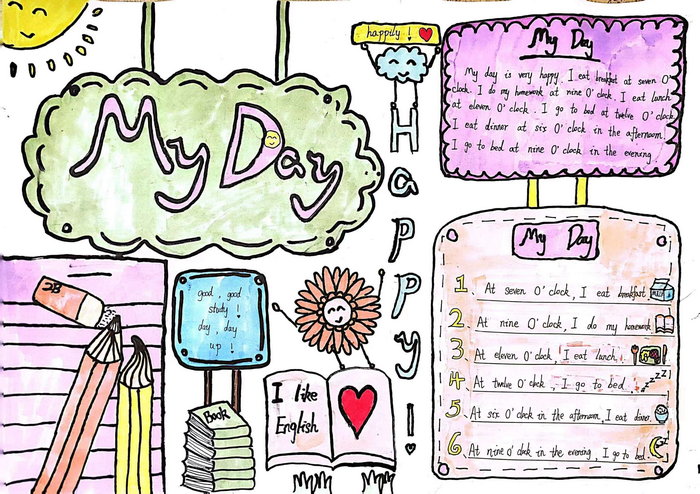 happily !
My Day
Happy!
My Day
My day is very happy. I eat breakfast at seven O'
clock. I do my homework at nine O'clock. I eat lunch
at eleven O'clock. I go to bed at twelve O'clock.
I eat dinner at six O'clock in the afternoon.
I go to bed at nine O'clock in the evening.
My Day
1. At seven O'clock, I eat breakfast.
2. At nine O'clock, I do my homework.
3. At eleven O'clock, I eat lunch.
4. At twelve O'clock, I go to bed.
zzzz
5. At six O'clock in the afternoon, I eat dinner.
6. At nine O'clock in the evening, I go to bed.
2B
good, good
study!
day, day
up!
Book
I like
English